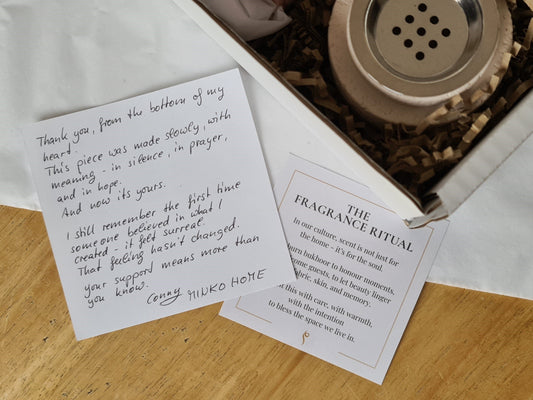 Thank you, from the bottom of my
heart.
This piece was made slowly, with
meaning - in silence, in prayer,
and in hope.
And now its yours.
I still remember the first time
someone believed in what I
created - it felt surreal.
That feeling hasn't changed.
your support means more than
you know.
Conny MINKO HOME
THE
FRAGRANCE RITUAL
In our culture, scent is not just for
the home - it's for the soul.
burn bukhoor to honour moments,
guests, to let beauty linger
fabric, skin, and memory.
this with care, with warmth,
with the intention
to bless the space we live in.